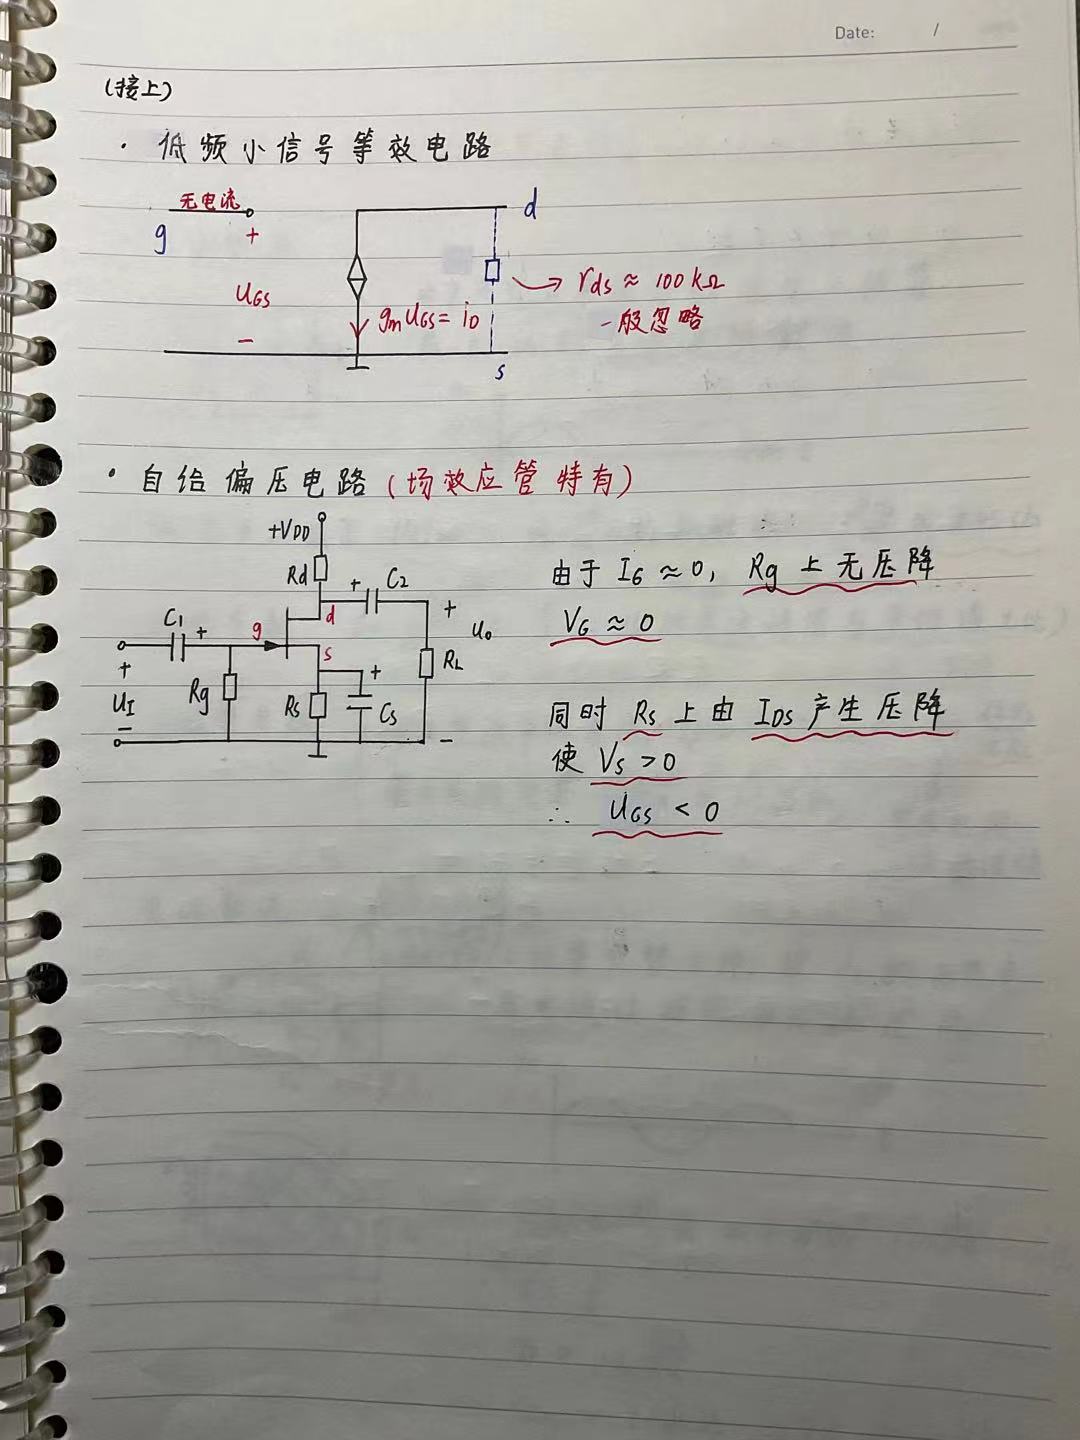 Date: /
(接上)
· 低频小信号等效电路
无电流
g
+
UGS
-
d
gmUGS = iD
rds ≈ 100kΩ
一般忽略
s
· 自给偏压电路(场效应管特有)
+VDD
Rd
+ C2
d
C1
+
g
s
+
Uo
RL
+
UI
-
Rg
Rs
+
Cs
-
由于 IG ≈ 0, Rg 上无压降
VG ≈ 0
同时 Rs 上由 IDS 产生压降
使 VS > 0
∴ UGS < 0